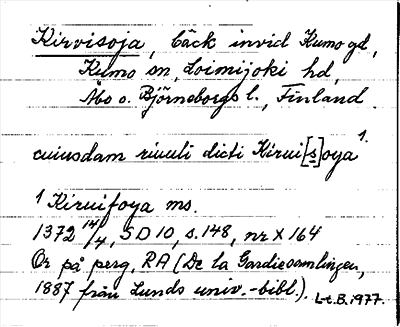 Kirvisoja, bäck invid Kumo gd,
Kumo sn, Loimijoki hd,
Åbo o. Björneborgs l., Finland
cuiusdam riuuli dicti Kirui[s]oya 1.
1 Kiruifoya ms.
1372 14/4, SD 10, s. 148, nr X 164
Or på perg, RA (De la Gardiesamlingen,
1887 från Lunds univ.-bibl.). Lt.B.1977.